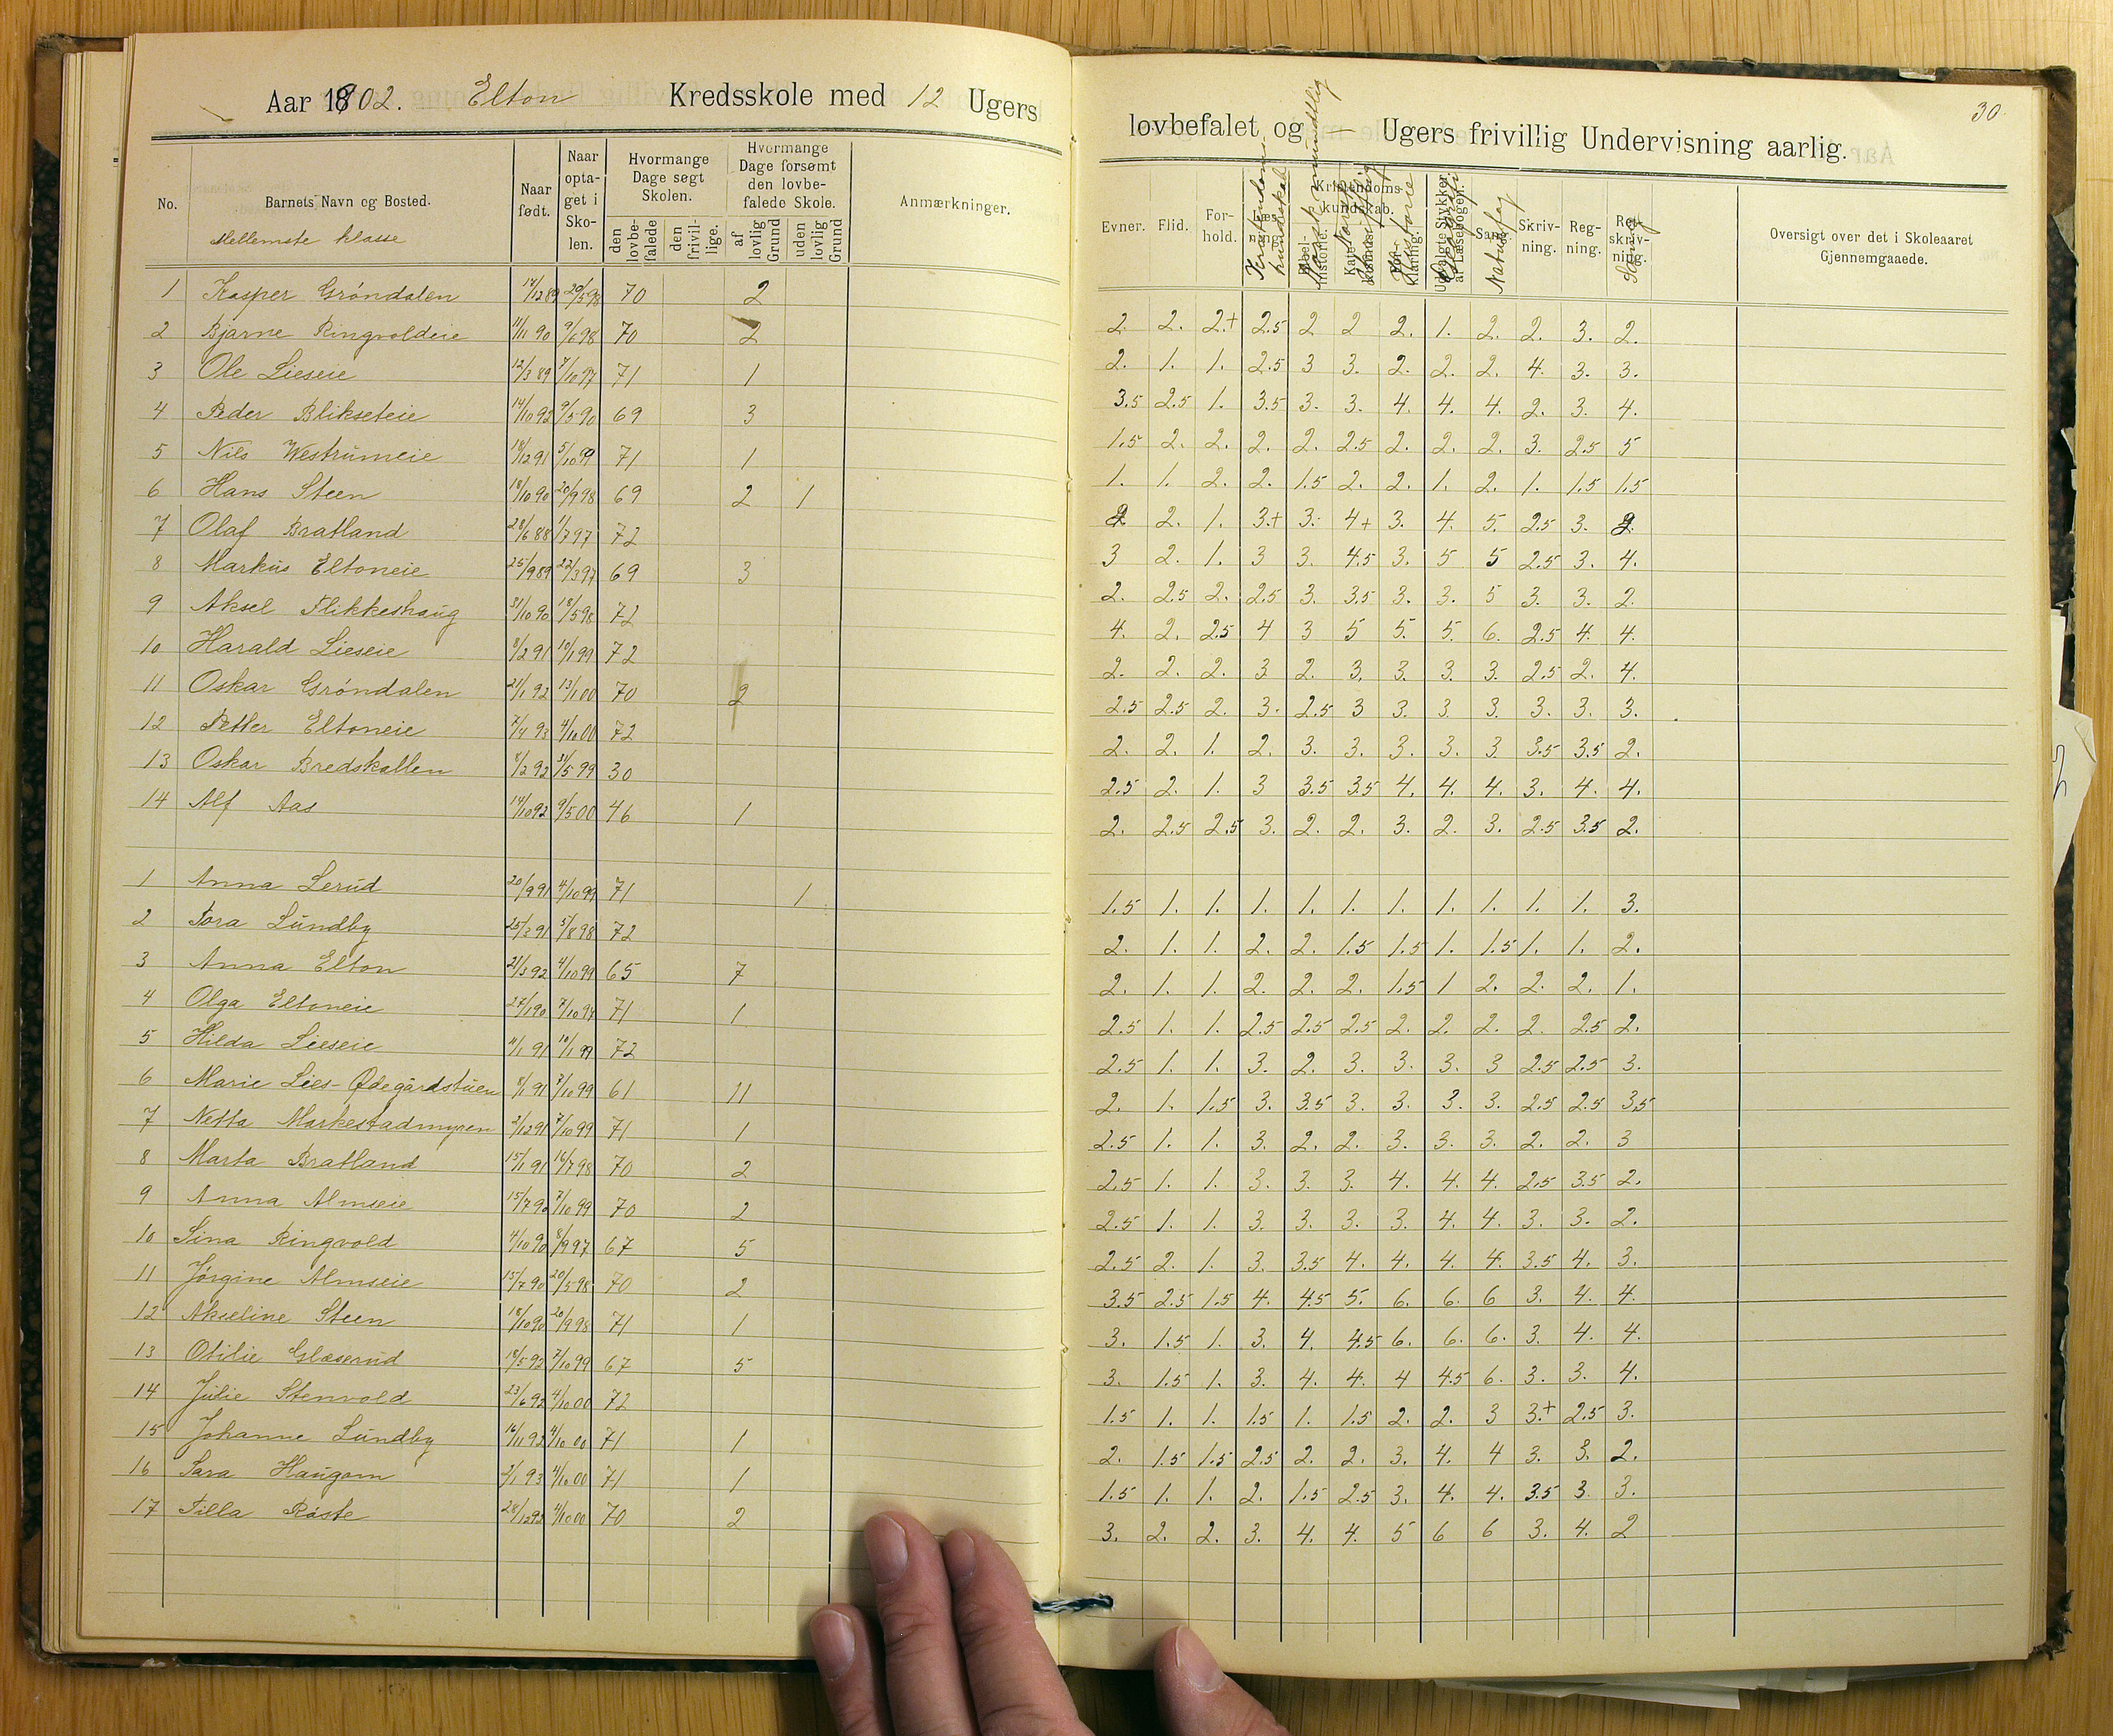 Aar 1902. Elton Kredsskole med 12 Ugers
No. Barnets Navn og Bosted. Naar født. Naar optaget i Skolen. Hvormange Dage søgt Skolen. Hvormange Dage forsømt den lovbefalede Skole. Anmærkninger.
den lovbefalede den frivillige. af lovlig Grund uden lovlig Grund
Mellemste klasse
1 Kasper Grøndalen 17/12 89 20/5 98 70 2
2 Bjarne Ringvoldeie 11/11 90 9/6 98 70 2
3 Ole Lieseie 12/3 89 7/10 97 71 1
4 Peder Blikseteie 14/10 92 9/5 90 69 3
5 Nils Westrumeie 18/12 91 5/10 99 71 1
6 Hans Steen 18/10 90 20/9 98 69 2 1
7 Olaf Bratland 28/6 88 1/7 97 72
8 Markus Eltoneie 25/9 89 22/3 97 69 3
9 Aksel Flikkeshaug 31/10 90 18/5 98 72
10 Harald Lieseie 8/2 91 10/1 99 72
11 Oskar Grøndalen 21/1 92 13/1 00 70 2
12 Petter Eltoneie 7/4 93 4/10 00 72
13 Oskar Bredskallen 8/2 92 31/5 99 30
14 Alf Aas 14/10 92 9/5 00 46 1
1 Anna Lerud 20/9 91 4/10 99 71 1
2 Tora Lundby 25/3 91 5/8 98 72
3 Anna Elton 21/3 92 4/10 99 65 7
4 Olga Eltoneie 27/1 90 7/10 97 71 1
5 Hilda Lieseie 11/1 91 10/1 99 72
6 Marie Lies-Ødegårdstuen 8/1 91 7/10 99 61 11
7 Netta Markestadmyren 2/12 91 7/10 99 71 1
8 Marta Bratland 15/1 91 16/7 98 70 2
9 Anna Almseie 15/7 90 7/10 99 70 2
10 Sina Ringvold 4/10 90 8/9 97 67 5
11 Jørgine Almseie 15/7 90 20/5 98 70 2
12 Akseline Steen 18/10 90 20/9 98 71 1
13 Otilie Glæserud 18/5 92 7/10 99 67 5
14 Julie Stenvold 23/6 92 4/10 00 72
15 Johanne Lundby 16/11 92 4/10 00 71 1
16 Sara Haugom 2/1 93 4/10 00 71 1
17 Tilla Røste 28/12 92 4/10 00 70 2
30.
lovbefalet og — Ugers frivillig Undervisning aarlig.
Evner. Flid. Forhold. Læsning. Kristendomskundskab. Udvalgte Stykker af Læsebogen. Sang. Skrivning. Regning. Retskrivning. Oversigt over det i Skoleaaret Gjennemgaaede.
Bibelhistorie. Katekismus Forklaring.
Kristendomskundskab Norsk mundtlig Norsk skriftlig Historie Geografi Naturfag Sang
2 2. 2.+ 2.5 2 2 2. 1. 2. 2. 3. 2.
2. 1. 1. 2.5 3 3. 2. 2. 2. 4. 3. 3.
3.5 2.5 1. 3.5 3. 3. 4. 4. 4. 2. 3. 4.
1.5 2. 2. 2. 2. 2.5 2. 2. 2. 3. 2.5 5
1. 1. 2. 2. 1.5 2. 2. 1. 2. 1. 1.5 1.5
2. 2. 1. 3.+ 3. 4+ 3. 4. 5. 2.5 3. 2.
3 2. 1. 3 3. 4.5 3. 5 5 2.5 3. 4.
2. 2.5 2. 2.5 3. 3.5 3. 3. 5 3. 3. 2.
4. 2. 2.5 4 3 5 5. 5. 6. 2.5 4. 4.
2. 2. 2. 3 2. 3. 3. 3. 3. 2.5 2. 4.
2.5 2.5 2. 3. 2.5 3 3. 3. 3. 3. 3. 3.
2. 2. 1. 2. 3. 3. 3. 3. 3 3.5 3.5 2.
2.5 2. 1. 3 3.5 3.5 4. 4. 4. 3. 4. 4.
2. 2.5 2.5 3. 2. 2. 3. 2. 3. 2.5 3.5 2.
1.5 1. 1. 1. 1. 1. 1. 1. 1. 1. 1. 3.
2. 1. 1. 2. 2. 1.5 1.5 1. 1.5 1. 1. 2.
2. 1. 1. 2. 2. 2. 1.5 1 2. 2. 2. 1.
2.5 1. 1. 2.5 2.5 2.5 2. 2. 2. 2. 2.5 2.
2.5 1. 1. 3. 2. 3. 3. 3. 3 2.5 2.5 3.
2. 1. 1.5 3. 3.5 3. 3. 3. 3. 2.5 2.5 3.5
2.5 1. 1. 3. 2. 2. 3. 3. 3. 2. 2. 3
2.5 1. 1. 3. 3. 3. 4. 4. 4. 2.5 3.5 2.
2.5 1. 1. 3. 3. 3. 3. 4. 4. 3. 3. 2.
2.5 2. 1. 3. 3.5 4. 4. 4. 4. 3.5 4. 3.
3.5 2.5 1.5 4. 4.5 5. 6. 6. 6 3. 4. 4.
3. 1.5 1. 3. 4. 4.5 6. 6. 6. 3. 4. 4.
3. 1.5 1. 3. 4. 4. 4 4.5 6. 3. 3. 4.
1.5 1. 1. 1.5 1. 1.5 2. 2. 3 3.+ 2.5 3.
2. 1.5 1.5 2.5 2. 2. 3. 4. 4 3. 3. 2.
1.5 1. 1. 2. 1.5 2.5 3. 4. 4. 3.5 3. 3.
3. 2. 2. 3. 4. 4. 5 6 6 3. 4. 2